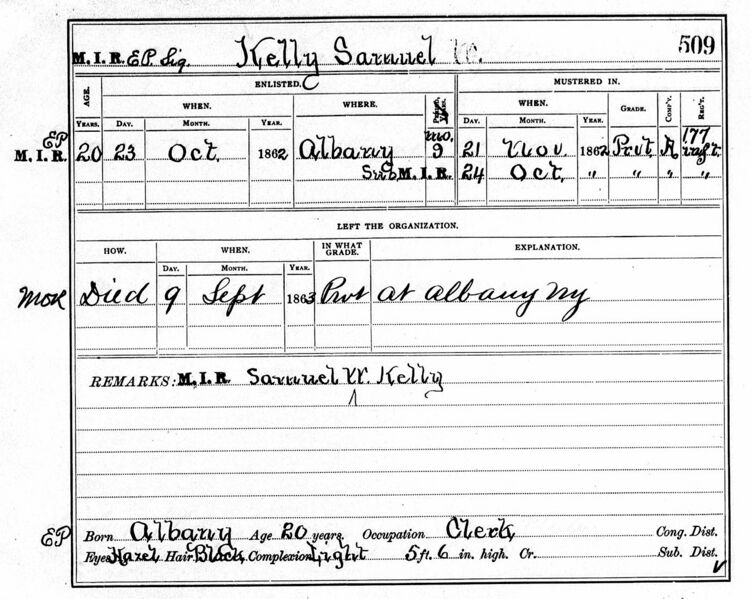 509
M.I.R. EP Sig. Kelly Samuel W.
ENLISTED. MUSTERED IN.
AGE. WHEN. WHERE. WHEN. GRADE. COMP'Y. REG'T.
YEARS. DAY. MONTH. YEAR. YEARS. DAY. MONTH. YEAR.
EP mo. 177
M.I.R. 20 23 Oct. 1862 Albany 9 21 Nov. 1862 Prvt. A Inft.
Sub M.I.R. 24 Oct. " " " "
LEFT THE ORGANIZATION.
HOW. WHEN. IN WHAT GRADE. EXPLANATION.
DAY. MONTH. YEAR.
MOR Died 9 Sept 1863 Prvt at Albany NY
REMARKS: M.I.R. Samuel W. Kelly
EP Born Albany Age 20 years. Occupation Clerk Cong. Dist.
Eyes Hazel Hair Black Complexion Light 5 ft. 6 in. high. Cr. Sub. Dist.